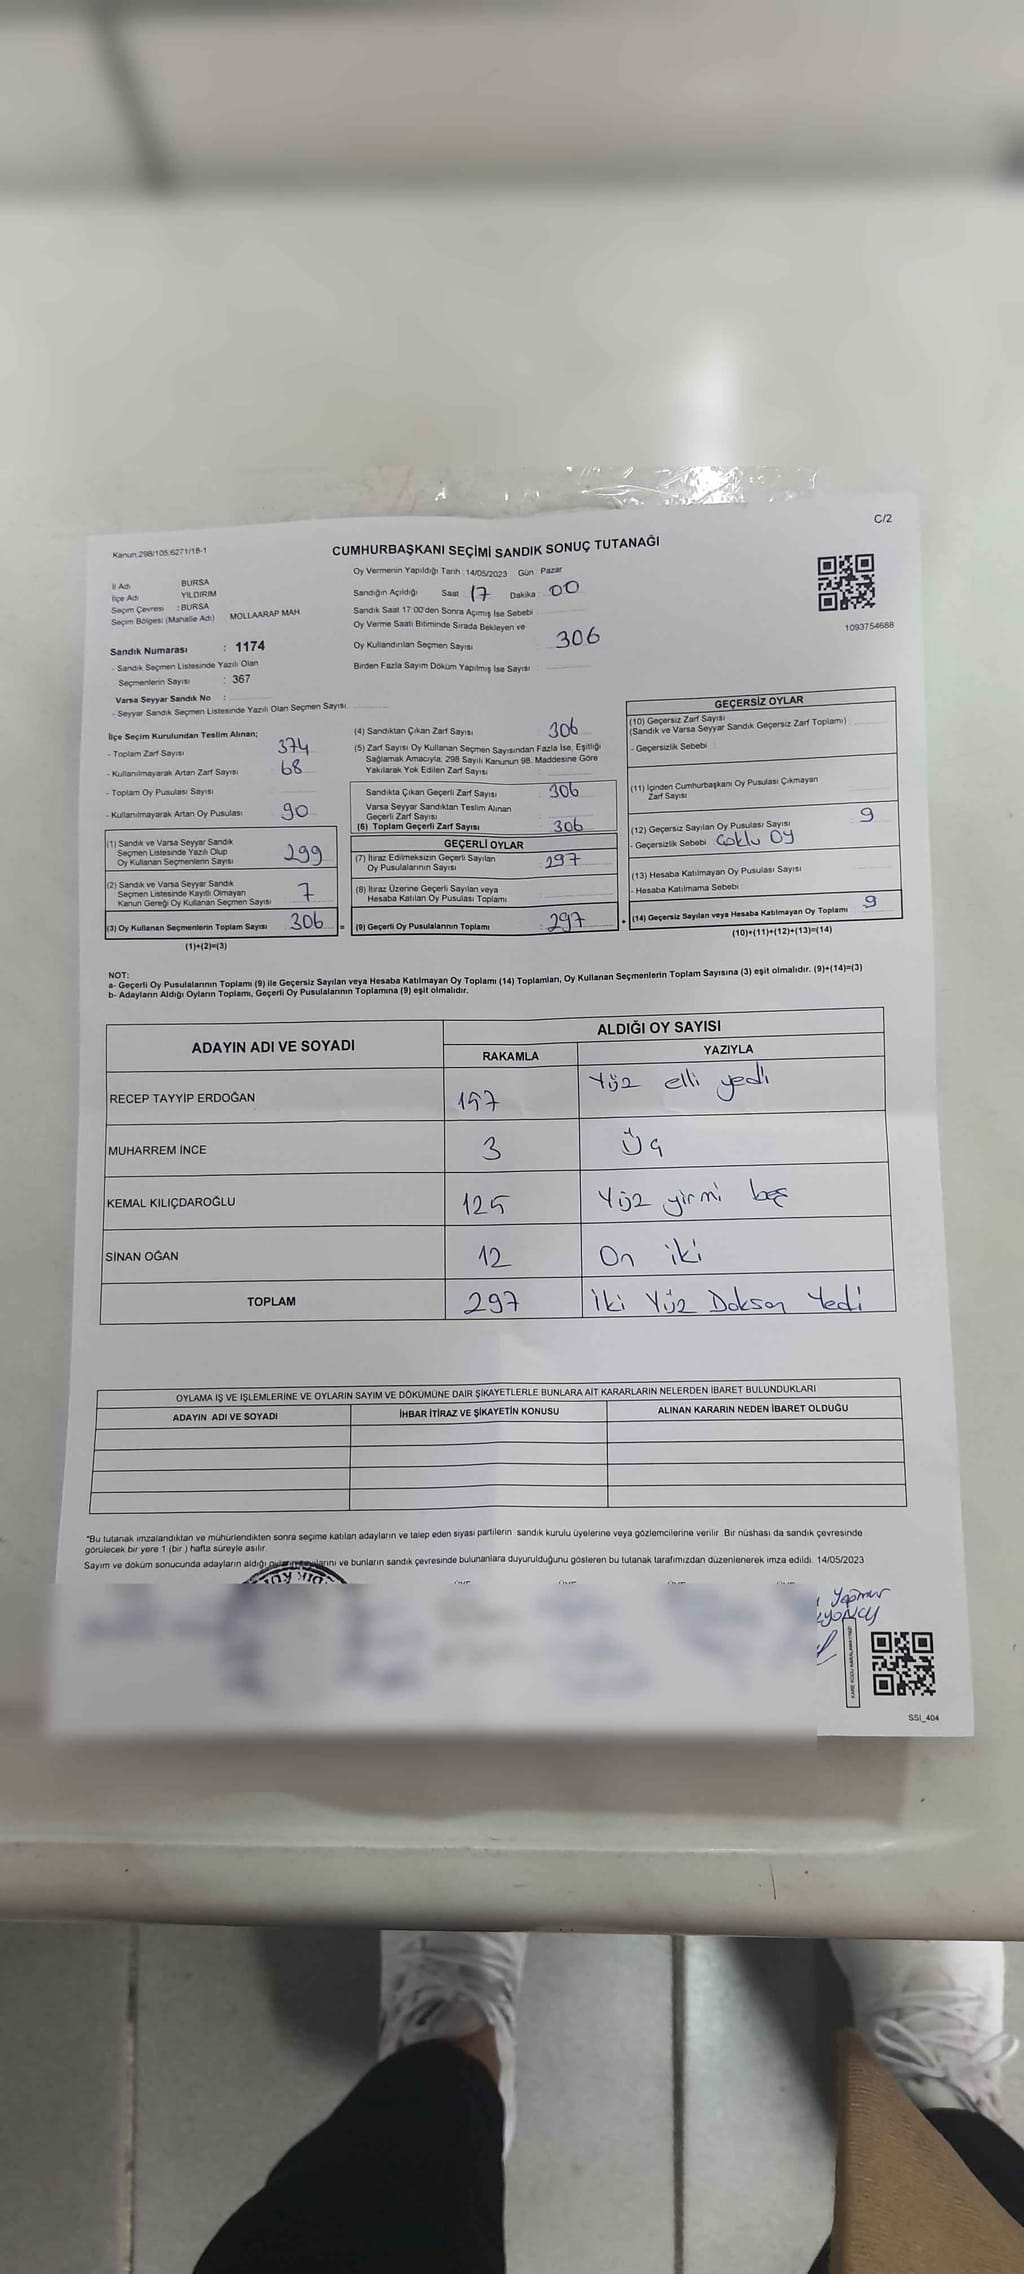 C/2
Kanun.298/105.6271/18-1
CUMHURBAŞKANI SEÇİMİ SANDIK SONUÇ TUTANAĞI
İl Adı BURSA
İlçe Adı YILDIRIM
Seçim Çevresi : BURSA
Seçim Bölgesi (Mahalle Adı) MOLLAARAP MAH.
Sandık Numarası : 1174
- Sandık Seçmen Listesinde Yazılı Olan
Seçmenlerin Sayısı : 367
Varsa Seyyar Sandık No :
- Seyyar Sandık Seçmen Listesinde Yazılı Olan Seçmen Sayısı
Oy Vermenin Yapıldığı Tarih : 14/05/2023 Gün : Pazar
Sandığın Açıldığı Saat 17 Dakika : 00
Sandık Saat 17:00'den Sonra Açımış İse Sebebi
Oy Verme Saati Bitiminde Sırada Bekleyen ve
Oy Kullandırılan Seçmen Sayısı 306
Birden Fazla Sayım Döküm Yapılmış İse Sayısı :
1093754688
İlçe Seçim Kurulundan Teslim Alınan;
- Toplam Zarf Sayısı 374
- Kullanılmayarak Artan Zarf Sayısı 68
- Toplam Oy Pusulası Sayısı
- Kullanılmayarak Artan Oy Pusulası 90
(1) Sandık ve Varsa Seyyar Sandık
Seçmen Listesinde Yazılı Olup
Oy Kullanan Seçmenlerin Sayısı 299
(2) Sandık ve Varsa Seyyar Sandık
Seçmen Listesinde Kayıtlı Olmayan
Kanun Gereği Oy Kullanan Seçmen Sayısı 7
(3) Oy Kullanan Seçmenlerin Toplam Sayısı 306 =
(1)+(2)=(3)
(4) Sandıktan Çıkan Zarf Sayısı 306
(5) Zarf Sayısı Oy Kullanan Seçmen Sayısından Fazla İse, Eşitliği
Sağlamak Amacıyla; 298 Sayılı Kanunun 98. Maddesine Göre
Yakılarak Yok Edilen Zarf Sayısı :
Sandıkta Çıkan Geçerli Zarf Sayısı 306
Varsa Seyyar Sandıktan Teslim Alınan
Geçerli Zarf Sayısı
(6) Toplam Geçerli Zarf Sayısı 306
GEÇERLİ OYLAR
(7) İtiraz Edilmeksizin Geçerli Sayılan
Oy Pusulalarının Sayısı 297
(8) İtiraz Üzerine Geçerli Sayılan veya
Hesaba Katılan Oy Pusulası Toplamı
(9) Geçerli Oy Pusulalarının Toplamı : 297 +
GEÇERSİZ OYLAR
(10) Geçersiz Zarf Sayısı
(Sandık ve Varsa Seyyar Sandık Geçersiz Zarf Toplamı)
- Geçersizlik Sebebi
(11) İçinden Cumhurbaşkanı Oy Pusulası Çıkmayan
Zarf Sayısı
(12) Geçersiz Sayılan Oy Pusulası Sayısı 9
- Geçersizlik Sebebi Çoklu Oy
(13) Hesaba Katılmayan Oy Pusulası Sayısı
- Hesaba Katılmama Sebebi
(14) Geçersiz Sayılan veya Hesaba Katılmayan Oy Toplamı 9
(10)+(11)+(12)+(13)=(14)
NOT:
a- Geçerli Oy Pusulalarının Toplamı (9) ile Geçersiz Sayılan veya Hesaba Katılmayan Oy Toplamı (14) Toplamları, Oy Kullanan Seçmenlerin Toplam Sayısına (3) eşit olmalıdır. (9)+(14)=(3)
b- Adayların Aldığı Oyların Toplamı, Geçerli Oy Pusulalarının Toplamına (9) eşit olmalıdır.
ADAYIN ADI VE SOYADI ALDIĞI OY SAYISI
RAKAMLA YAZIYLA
RECEP TAYYİP ERDOĞAN 157 Yüz elli yedi
MUHARREM İNCE 3 Üç
KEMAL KILIÇDAROĞLU 125 Yüz yirmi beş
SİNAN OĞAN 12 On iki
TOPLAM 297 İki Yüz Doksan Yedi
OYLAMA İŞ VE İŞLEMLERİNE VE OYLARIN SAYIM VE DÖKÜMÜNE DAİR ŞİKAYETLERLE BUNLARA AİT KARARLARIN NELERDEN İBARET BULUNDUKLARI
ADAYIN ADI VE SOYADI İHBAR İTİRAZ VE ŞİKAYETİN KONUSU ALINAN KARARIN NEDEN İBARET OLDUĞU
*Bu tutanak imzalandıktan ve mühürlendikten sonra seçime katılan adayların ve talep eden siyasi partilerin sandık kurulu üyelerine veya gözlemcilerine verilir. Bir nüshası da sandık çevresinde
görülecek bir yere 1 (bir ) hafta süreyle asılır.
Sayım ve döküm sonucunda adayların aldığı ve bunların sandık çevresinde bulunanlara duyurulduğunu gösteren bu tutanak tarafımızdan düzenlenerek imza edildi. 14/05/2023
Yağmur
KARE KODU KARALAMAYINIZ!
SSI_404